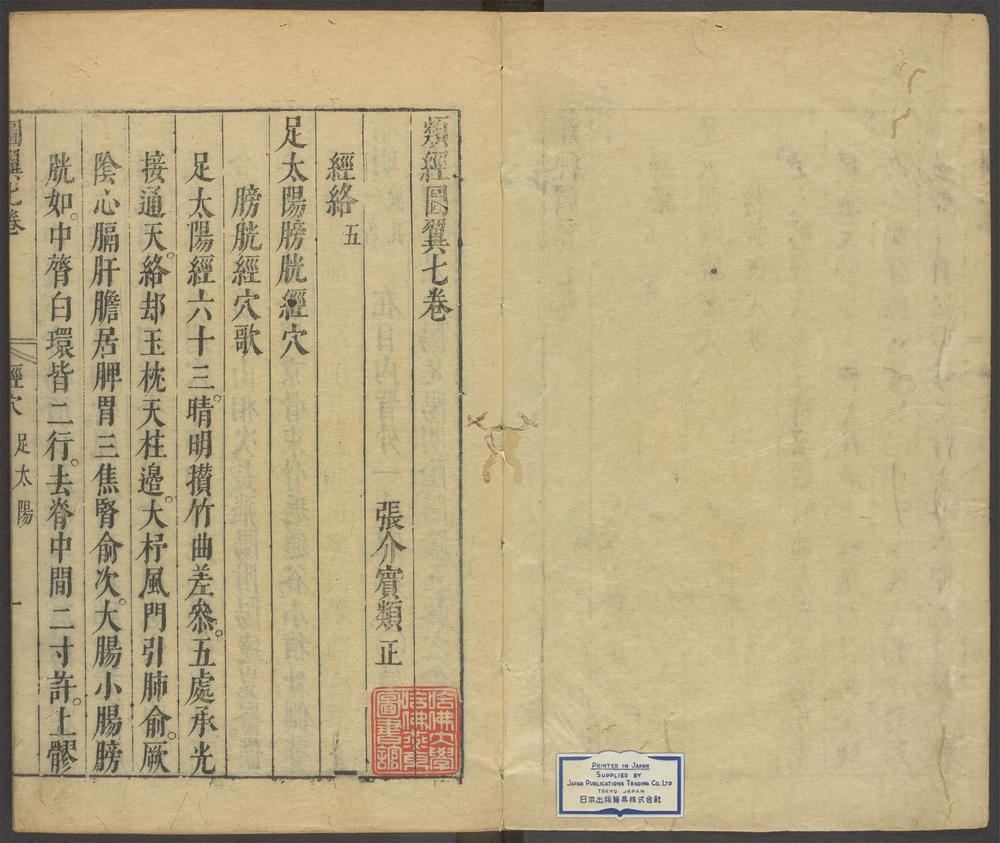 類經圖翼七卷
張介賓類正
經絡五
足太陽膀胱經穴
膀胱經穴歌
足太陽經六十三。晴明攢竹曲差叅。五處承光
接通天。絡却玉枕天柱邉。大杼風門引肺俞。厥
陰心膈肝膽居脾胃三焦腎俞次。大腸小腸膀
胱如。中膂白環皆二行。去脊中間二寸許。上髎
圖翼七卷 經穴 足太陽 一
哈佛大學
哈佛燕京
圖書館
PRINTED IN JAPAN
SUPPLIED BY
JAPAN PUBLICATIONS TRADING CO., LTD
TOKYO JAPAN
日本出版貿易株式会社